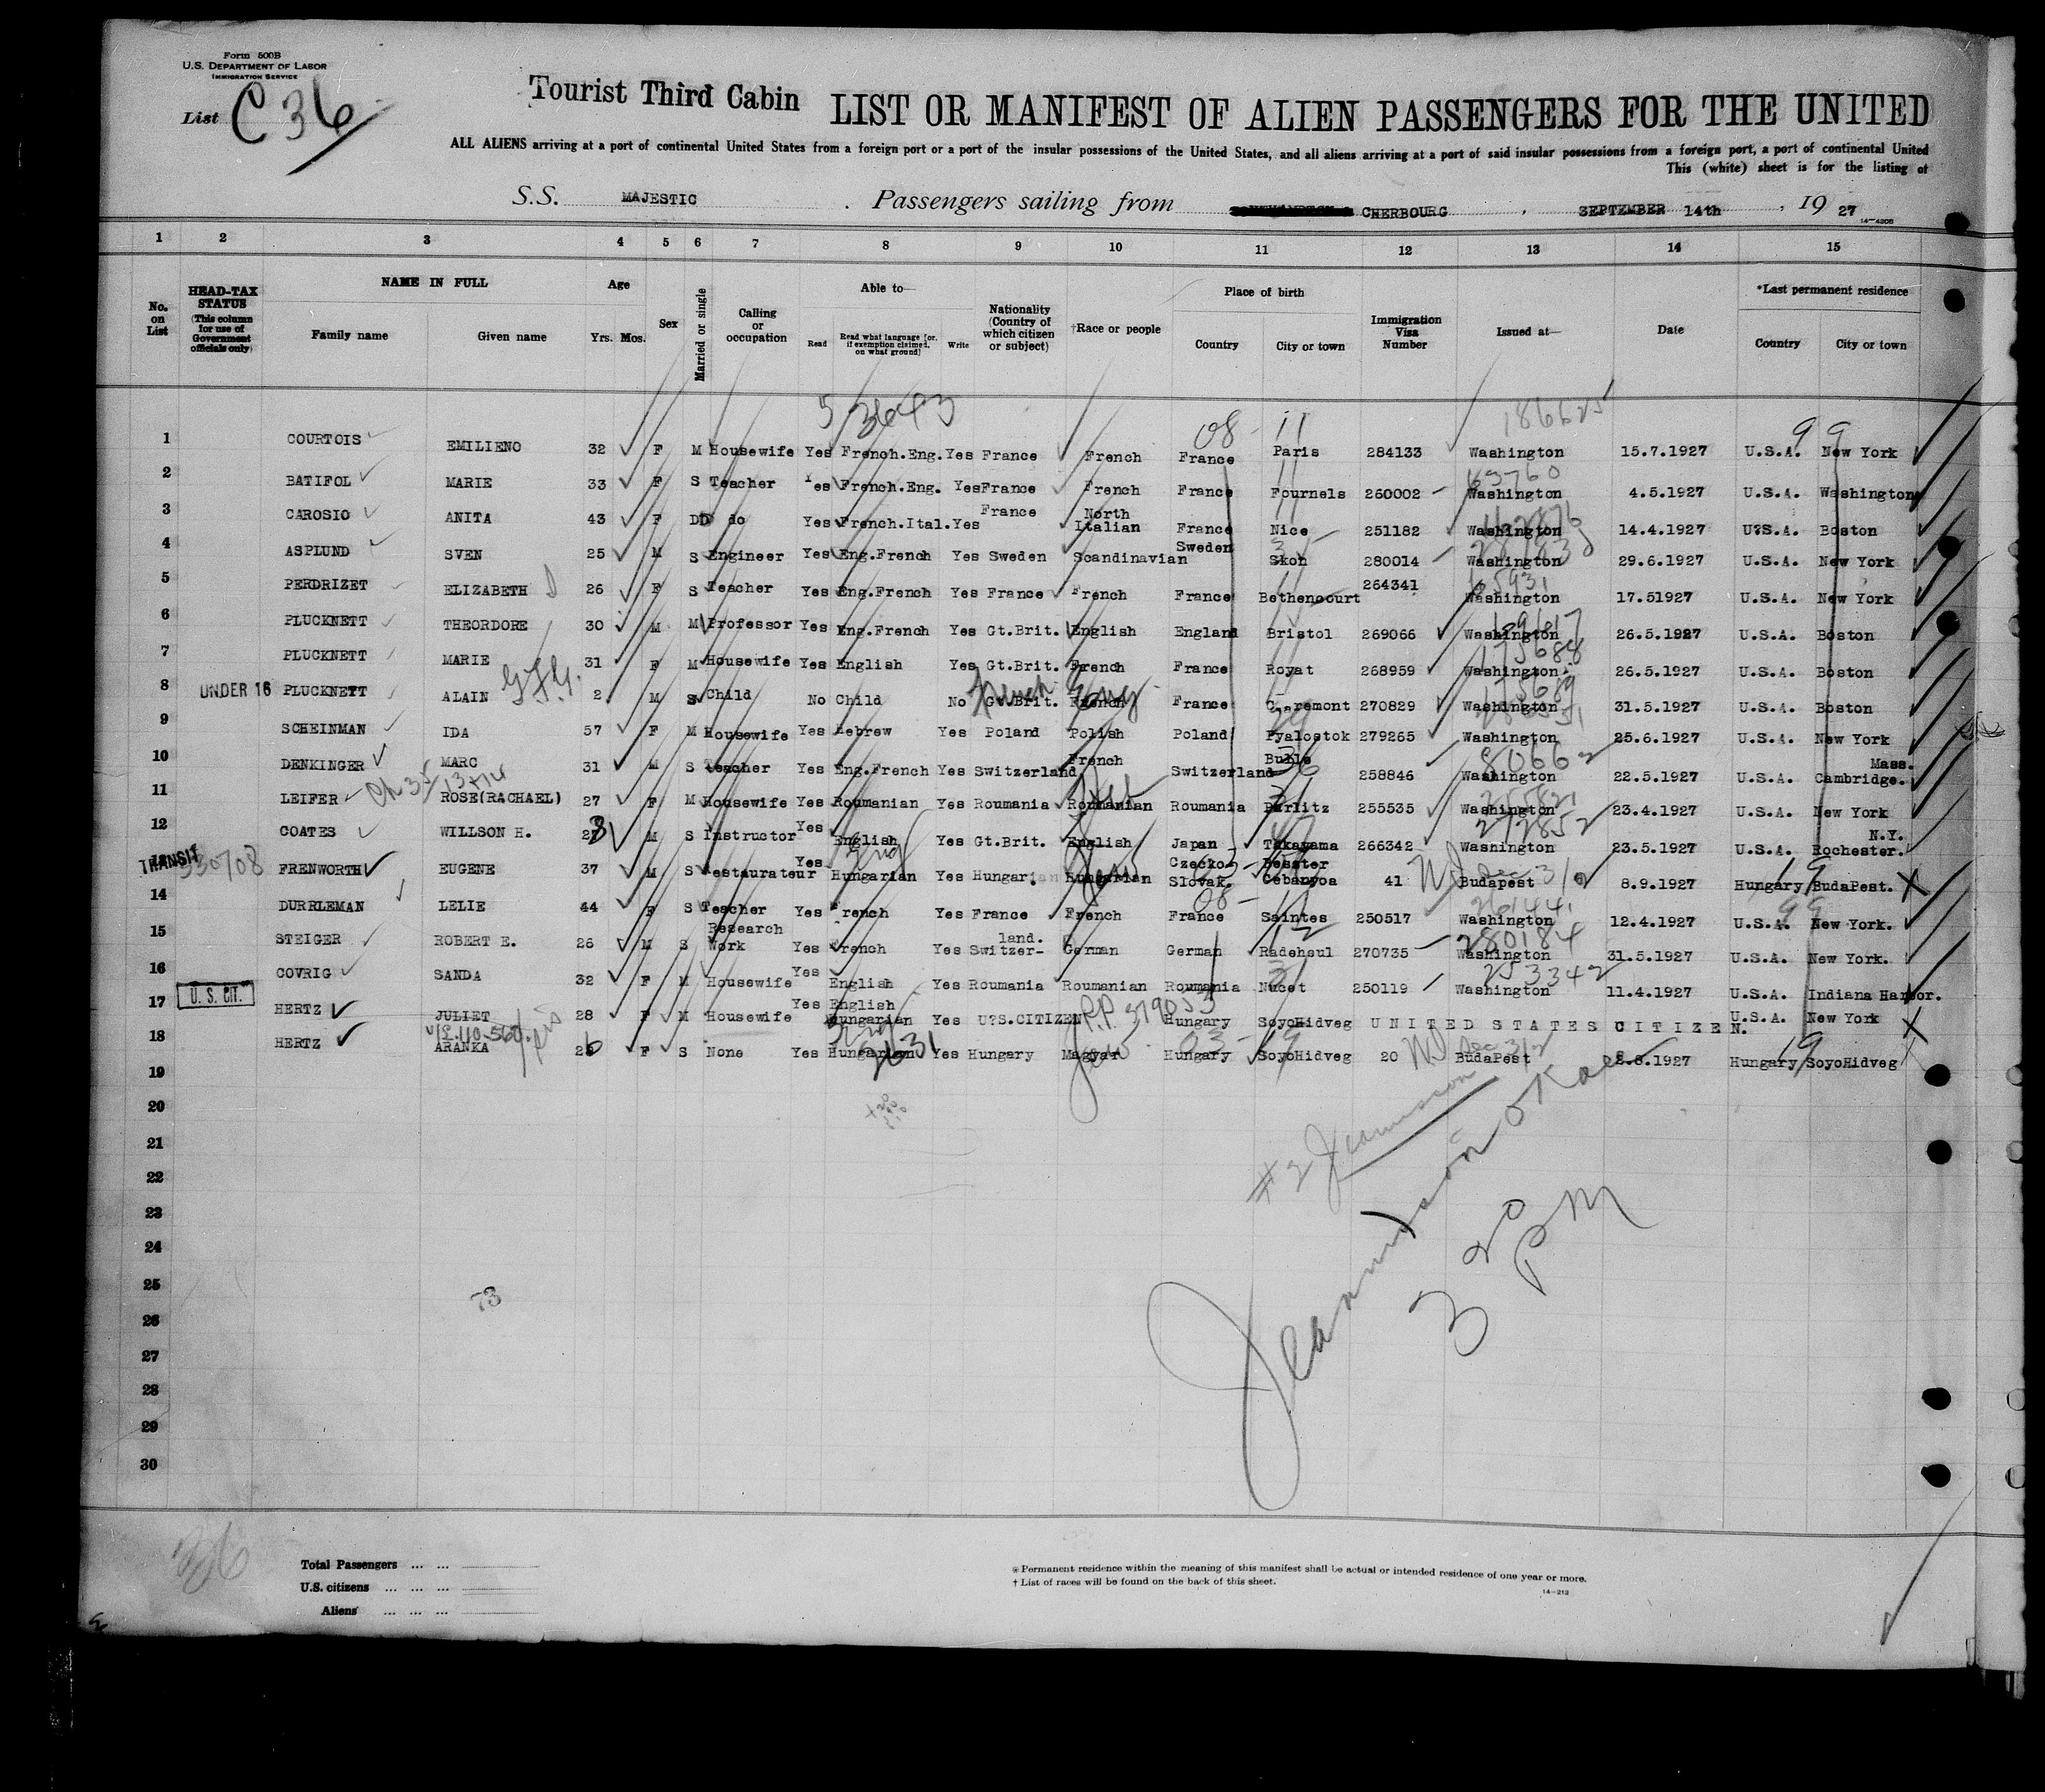 Form 500B
U.S. DEPARTMENT OF LABOR
IMMIGRATION SERVICE
List C 36
Tourist Third Cabin LIST OR MANIFEST OF ALIEN PASSENGERS FOR THE UNITED
ALL ALIENS arriving at a port of continental United States from a foreign port or a port of the insular possessions of the United States, and all aliens arriving at a port of said insular possessions from a foreign port, a port of continental United
This (white) sheet is for the listing of
S.S. MAJESTIC . Passengers sailing from CHERBOURG , SEPTEMBER 14th , 19 27
14-4206
1 2 3 4 5 6 7 8 9 10 11 12 13 14 15
No. on List HEAD-TAX STATUS (This column for use of Government officials only) NAME IN FULL Family name Given name Age Yrs. Mos. Sex Married or single Calling or occupation Able to— Read Read what language [or, if exemption claimed, on what ground] Write Nationality (Country of which citizen or subject) †Race or people Place of birth Country City or town Immigration Visa Number Issued at— Date *Last permanent residence Country City or town
5 3643 186625
08 - 11 99
1 COURTOIS EMILIENO 32 F M Housewife Yes French.Eng. Yes France French France Paris 284133 Washington 15.7.1927 U.S.A. New York
63760
2 BATIFOL MARIE 33 F S Teacher Yes French.Eng. Yes France French France Fournels 260002 Washington 4.5.1927 U.S.A. Washington
3 CAROSIO ANITA 43 F D do Yes French.Ital. Yes France North Italian France Nice 251182 Washington 14.4.1927 U?S.A. Boston
4 ASPLUND SVEN 25 M S Engineer Yes Eng.French Yes Sweden Scandinavian Sweden Skoh 280014 Washington 29.6.1927 U.S.A. New York
5 PERDRIZET ELIZABETH 26 F S Teacher Yes Eng.French Yes France French France Bethencourt 264341 Washington 17.51927 U.S.A. New York
6 PLUCKNETT THEORDORE 30 M M Professor Yes Eng.French Yes Gt.Brit. English England Bristol 269066 Washington 26.5.1927 U.S.A. Boston
175688
7 PLUCKNETT MARIE 31 F M Housewife Yes English Yes Gt.Brit. French France Royat 268959 Washington 26.5.1927 U.S.A. Boston
175689
8 UNDER 16 PLUCKNETT ALAIN 2 M S Child No Child No Gt.Brit. French France Claremont 270829 Washington 31.5.1927 U.S.A. Boston
9 SCHEINMAN IDA 57 F M Housewife Yes Hebrew Yes Poland Polish Poland Pyalostok 279265 Washington 25.6.1927 U.S.A. New York
80662
10 DENKINGER MARC 31 M S Teacher Yes Eng.French Yes Switzerland French Switzerland Bulle 258846 Washington 22.5.1927 U.S.A. Mass. Cambridge.
11 LEIFER ROSE(RACHAEL) 27 F M Housewife Yes Roumanian Yes Roumania Roumanian Roumania Barlitz 255535 Washington 23.4.1927 U.S.A. New York
272852
12 COATES WILLSON H. 28 M S Instructor Yes English Yes Gt.Brit. English Japan Takayama 266342 Washington 23.5.1927 U.S.A. N.Y. Rochester.
TRANSIT FRENWORTH EUGENE 37 M S Restaurateur Yes Hungarian Yes Hungarian Hungarian Czecko-Slovak. Besster Cebanyoa 41 Budapest 8.9.1927 Hungary BudaPest.
261441
14 DURRLEMAN LELIE 44 F S Teacher Yes French Yes France French France Saintes 250517 Washington 12.4.1927 U.S.A. New York.
280184
15 STEIGER ROBERT E. 26 M S Research Work Yes French Yes Switzer-land. German German Radebeul 270735 Washington 31.5.1927 U.S.A. New York.
253342
16 COVRIG SANDA 32 F M Housewife Yes English Yes Roumania Roumanian Roumania Nucet 250119 Washington 11.4.1927 U.S.A. Indiana Harbor.
17 U. S. CIT. HERTZ JULIET 28 F M Housewife Yes English Hungarian Yes U?S.CITIZEN P.P. 379053 Hungary SoyoHidveg UNITED STATES CITIZEN. U.S.A. New York
18 HERTZ ARANKA 26 F S None Yes Hungarian Yes Hungary Magyar Hungary SoyoHidveg 20 BudaPest 8.8.1927 Hungary SoyoHidveg
19
20
21
22
23
24
25
26
27
28
29
30
73
3 20 PM
36
Total Passengers ... ...
U.S. citizens ... ... ...
Aliens ... ... ...
* Permanent residence within the meaning of this manifest shall be actual or intended residence of one year or more.
† List of races will be found on the back of this sheet.
14-212